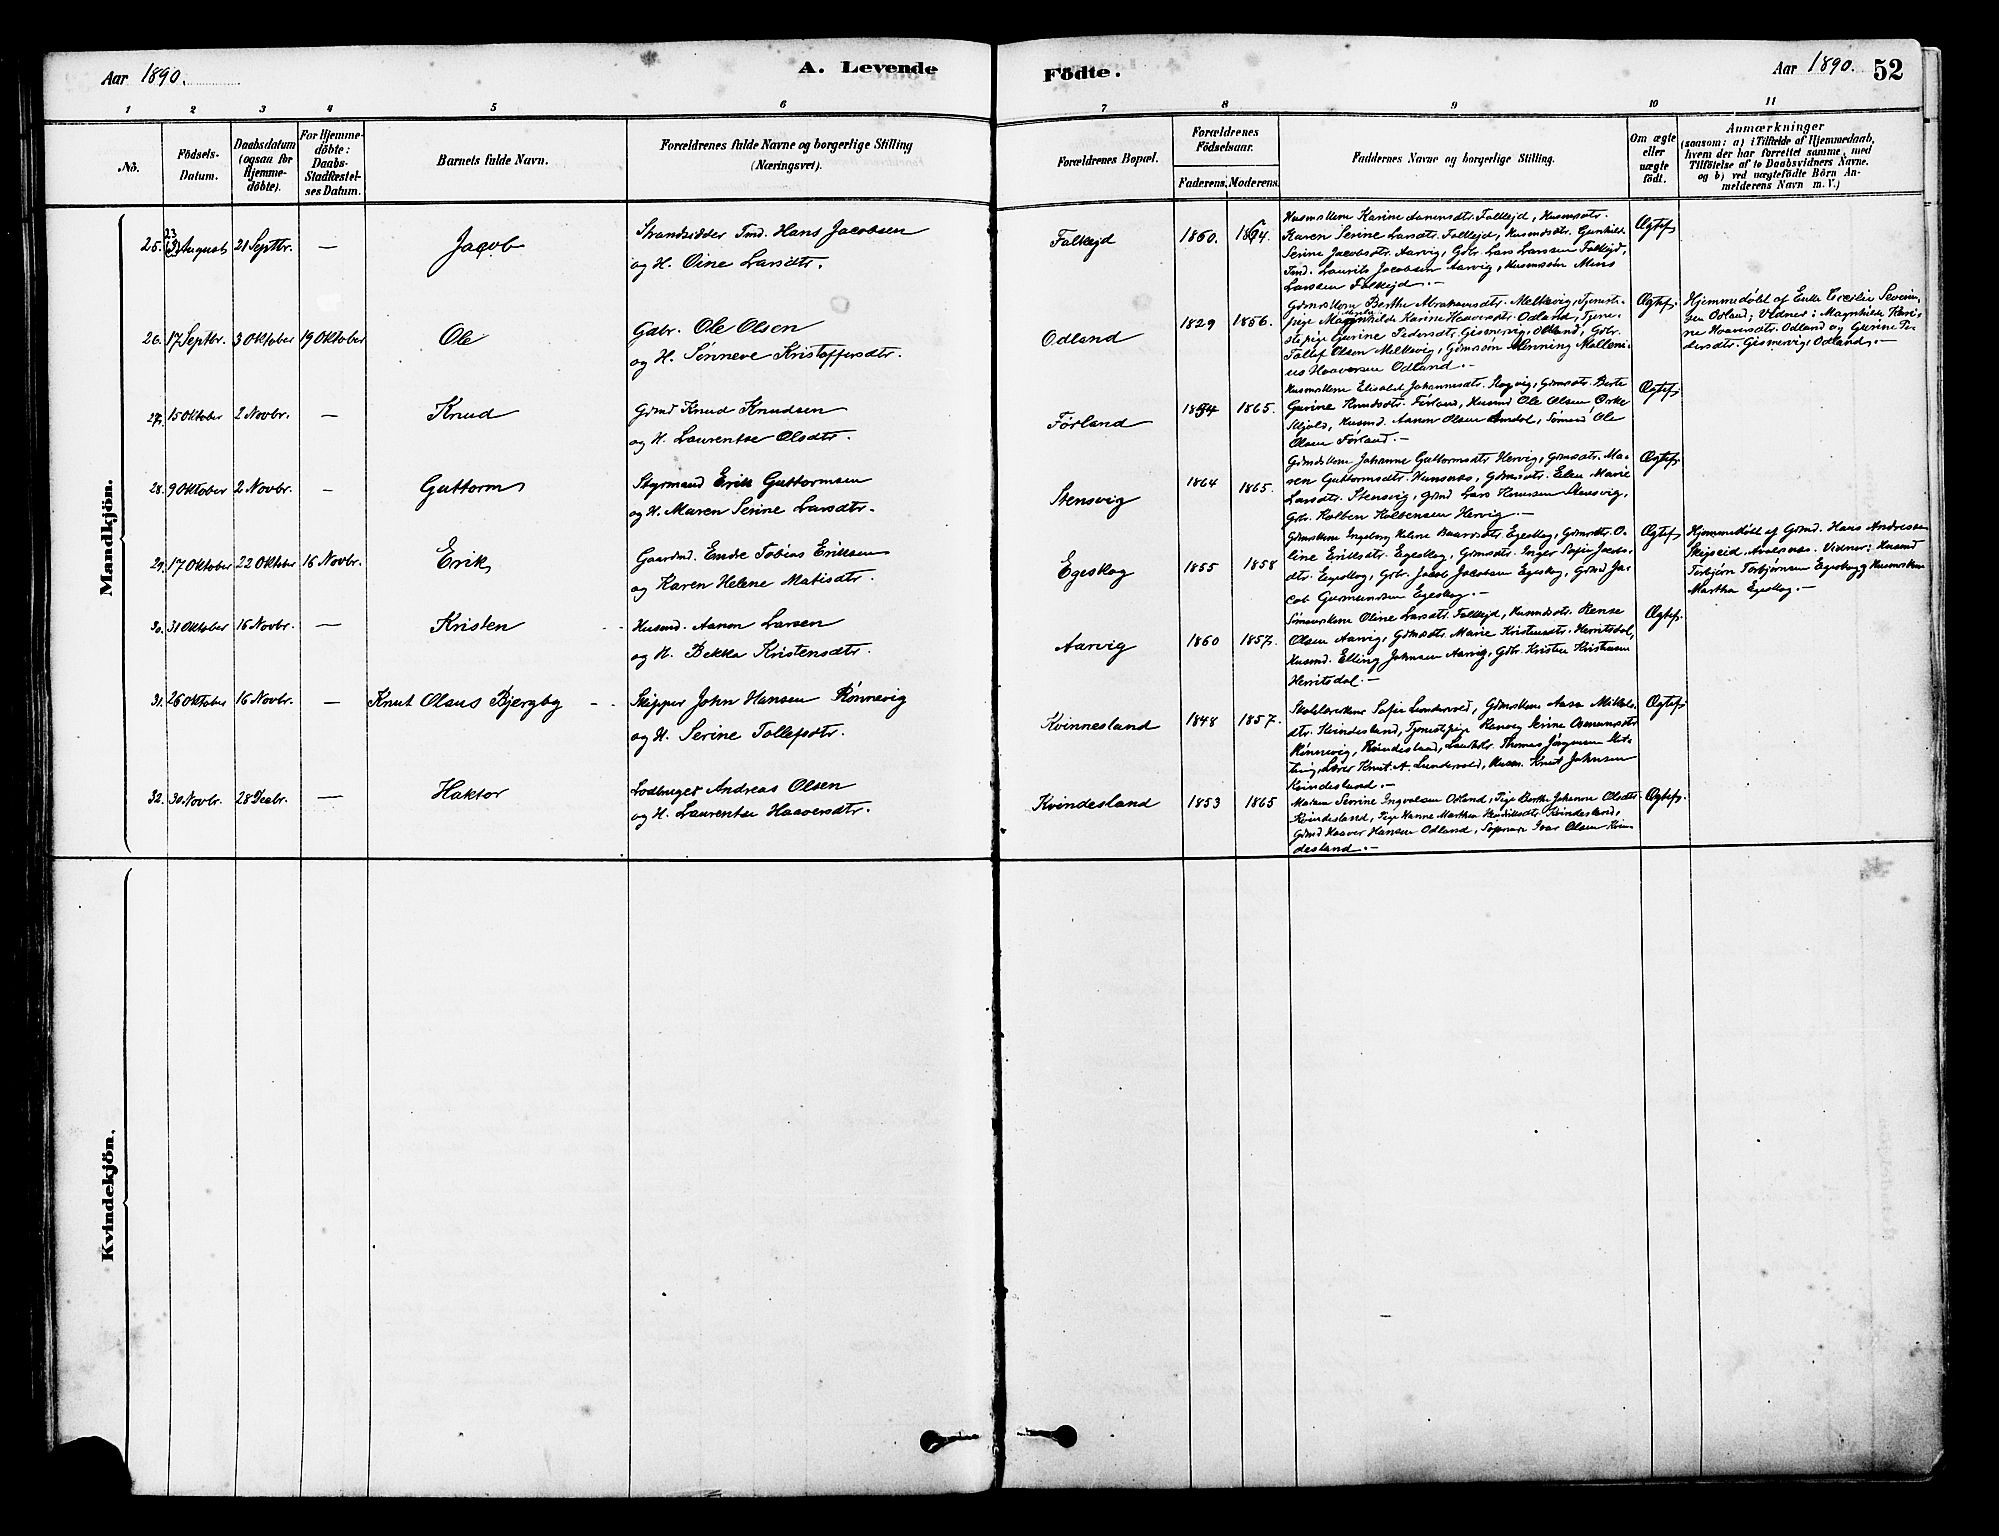 Aar 1890.
A. Levende
Födte.
Aar 1890. 52
1 2 3 4 5 6 7 8 9 10 11
No.
Födsels-
Datum.
Daabsdatum
(ogsaa for
Hjemme-
döbte).
For Hjemme-
döbte:
Daabs-
Stadfæstel-
ses Datum.
Barnets fulde Navn.
Forældrenes fulde Navne og borgerlige Stilling
(Næringsvei).
Forældrenes Bopæl.
Forældrenes
Födselsaar.
Faderens. Moderens.
Faddernes Navne og borgerlige Stilling.
Om ægte
eller
uægte
födt.
Anmærkninger
(saasom: a) i Tilfælde af Hjemmedaab,
hvem der har forrettet samme, med
Tilföielse af to Daabsvidners Navne.
og b) ved uægtefödte Börn An-
melderens Navn m. V.)
Mandkjön.
25. 23 August 21 Septbr. — Jacob
Strandsidder Hans Jacobsen
og H. Oine Larsdtr.
Falkejd 1850.
Karine Aanensdtr. Falkejd, Husmdsdtr.
Karen Serine Larsdtr. Falkejd, Husmdsdtr. Gunhild
Serine Jacobsdtr. Aarvig, Gdbr. Lars Larssen Falkejd,
Laurits Jacobsen Aarvig, Husmssøn Mens
Larssen Falkejd. —
Ægtef.
26. 17 Septbr. 3 Oktober 19 Oktober Ole
Gdbr. Ole Olsen
og H. Sønneve Kristoffersdtr.
Odland 1829 1856.
Berthe Abrahamsdtr. Melkevig, Tjeneste-
pige Magnhilde Karine Haaversdtr. Odland, Tjene-
stepige Gurine Pedersdtr. Gismervig, Odland, Gdbr.
Tollef Olsen Melkevig, Gdmssøn Henning Malleni-
us Haaversen Odland. —
Ægtef.
Hjemmedøbt af Enke Cecelie Severin-
sen Odland; Vidner: Magnhilde Kari-
ne Haaversdtr. Odland og Gurine Pe-
dersdtr. Gismervig, Odland. —
27. 15 Oktober 2 Novbr. — Knud
Grdmd Knud Knudsen
og H. Laurentse Olsdtr.
Førland 1865.
Elisabet Johannesdtr. Røgvig, Gdmsdtr. Berte
Gurine Knudsdtr. Førland, Husmd Ole Olsen Ørke
Skjold, Husmd. Aanon Olsen Amdal, Sømand Ole
Olsen Førland. —
Ægtef.
28. 9 Oktober 2 Novbr. — Guttorm
Styrmand Erik Guttormsen
og H. Maren Serine Larsdtr.
Stensvig 1864 1865.
Johanne Guttormsdtr. Hervig, Gdmsdtr. Ma-
ren Guttormsdtr. Hunsnæs, Gdmsdtr. Elen Marie
Larsdtr. Stensvig, Grdmd Lars Knutsen Stensvig,
Gdbr. Kolben Kolbensen Hervig. —
Ægtef.
29. 17 Oktober 22 Oktober 16 Novbr. Erik
Gaardmd. Endre Tobias Eriksen
og Karen Helene Matisdtr.
Egeskog 1855 1858
Ingeborg Helene Baardsdtr. Egeskog, Gdmsdtr. O-
line Eriksdtr. Egeskog, Gdmsdtr. Inger Sofie Jacobs-
dtr. Egeskog, Gdbr. Jacob Jacobsen Egeskog, Grdmd Ja-
cob Gudmundsen Egeskog. —
Ægtef.
Hjemmedøbt af Grdmd. Hans Andressen
Skjpseid, Avaldsnæs. Vidner: Husmd
Torbjørn Torbjørnsen Egeskog og
Martha Egeskog. —
30. 31 Oktober 16 Novbr. — Kristen
Husmd. Aanon Larsen
og H. Bekka Kristensdtr.
Aarvig 1860 1857.
Oline Larsdtr. Falkejd, Husmdsdtr. Rense
Olsen Aarvig, Gdmsdtr. Marie Kristensdtr. Herritsdal,
Husmd. Elling Johnsen Aarvig, Gdbr. Kristen Kristensen
Herritsdal. —
Ægtef.
31. 26 Oktober 16 Novbr. — Knut Olaus Bjergby
Skipper John Hansen Rønnevig
og H. Serine Tollefsdtr.
Kvinnesland 1848 1857.
Sofie Lundervold, Aasa Mikkels-
dtr. Kvindesland, Tjenestepige Ranveg Serine Osmundsdtr
Rønnevig, Kvindesland, Thomas Jørgensen
Lærer Knut A. Lundervold, Husm. Knut Johnsen
Kvindesland. —
Ægtef.
32. 30 Novbr. 28 Decbr. — Haktor
Lodbruger Andreas Olsen
og H. Laurentse Haaversdtr.
Kvindesland 1853 1865
Serine Ingvalsen Odland, Pige Berthe Johanne Olsdtr
Kvindesland, Pige Hanne Marthea Henriksdtr. Kvindesland,
Grdmd Haaver Hansen Odland, Ivar Olsen Kvin-
desland. —
Ægtef.
Kvindekjön.